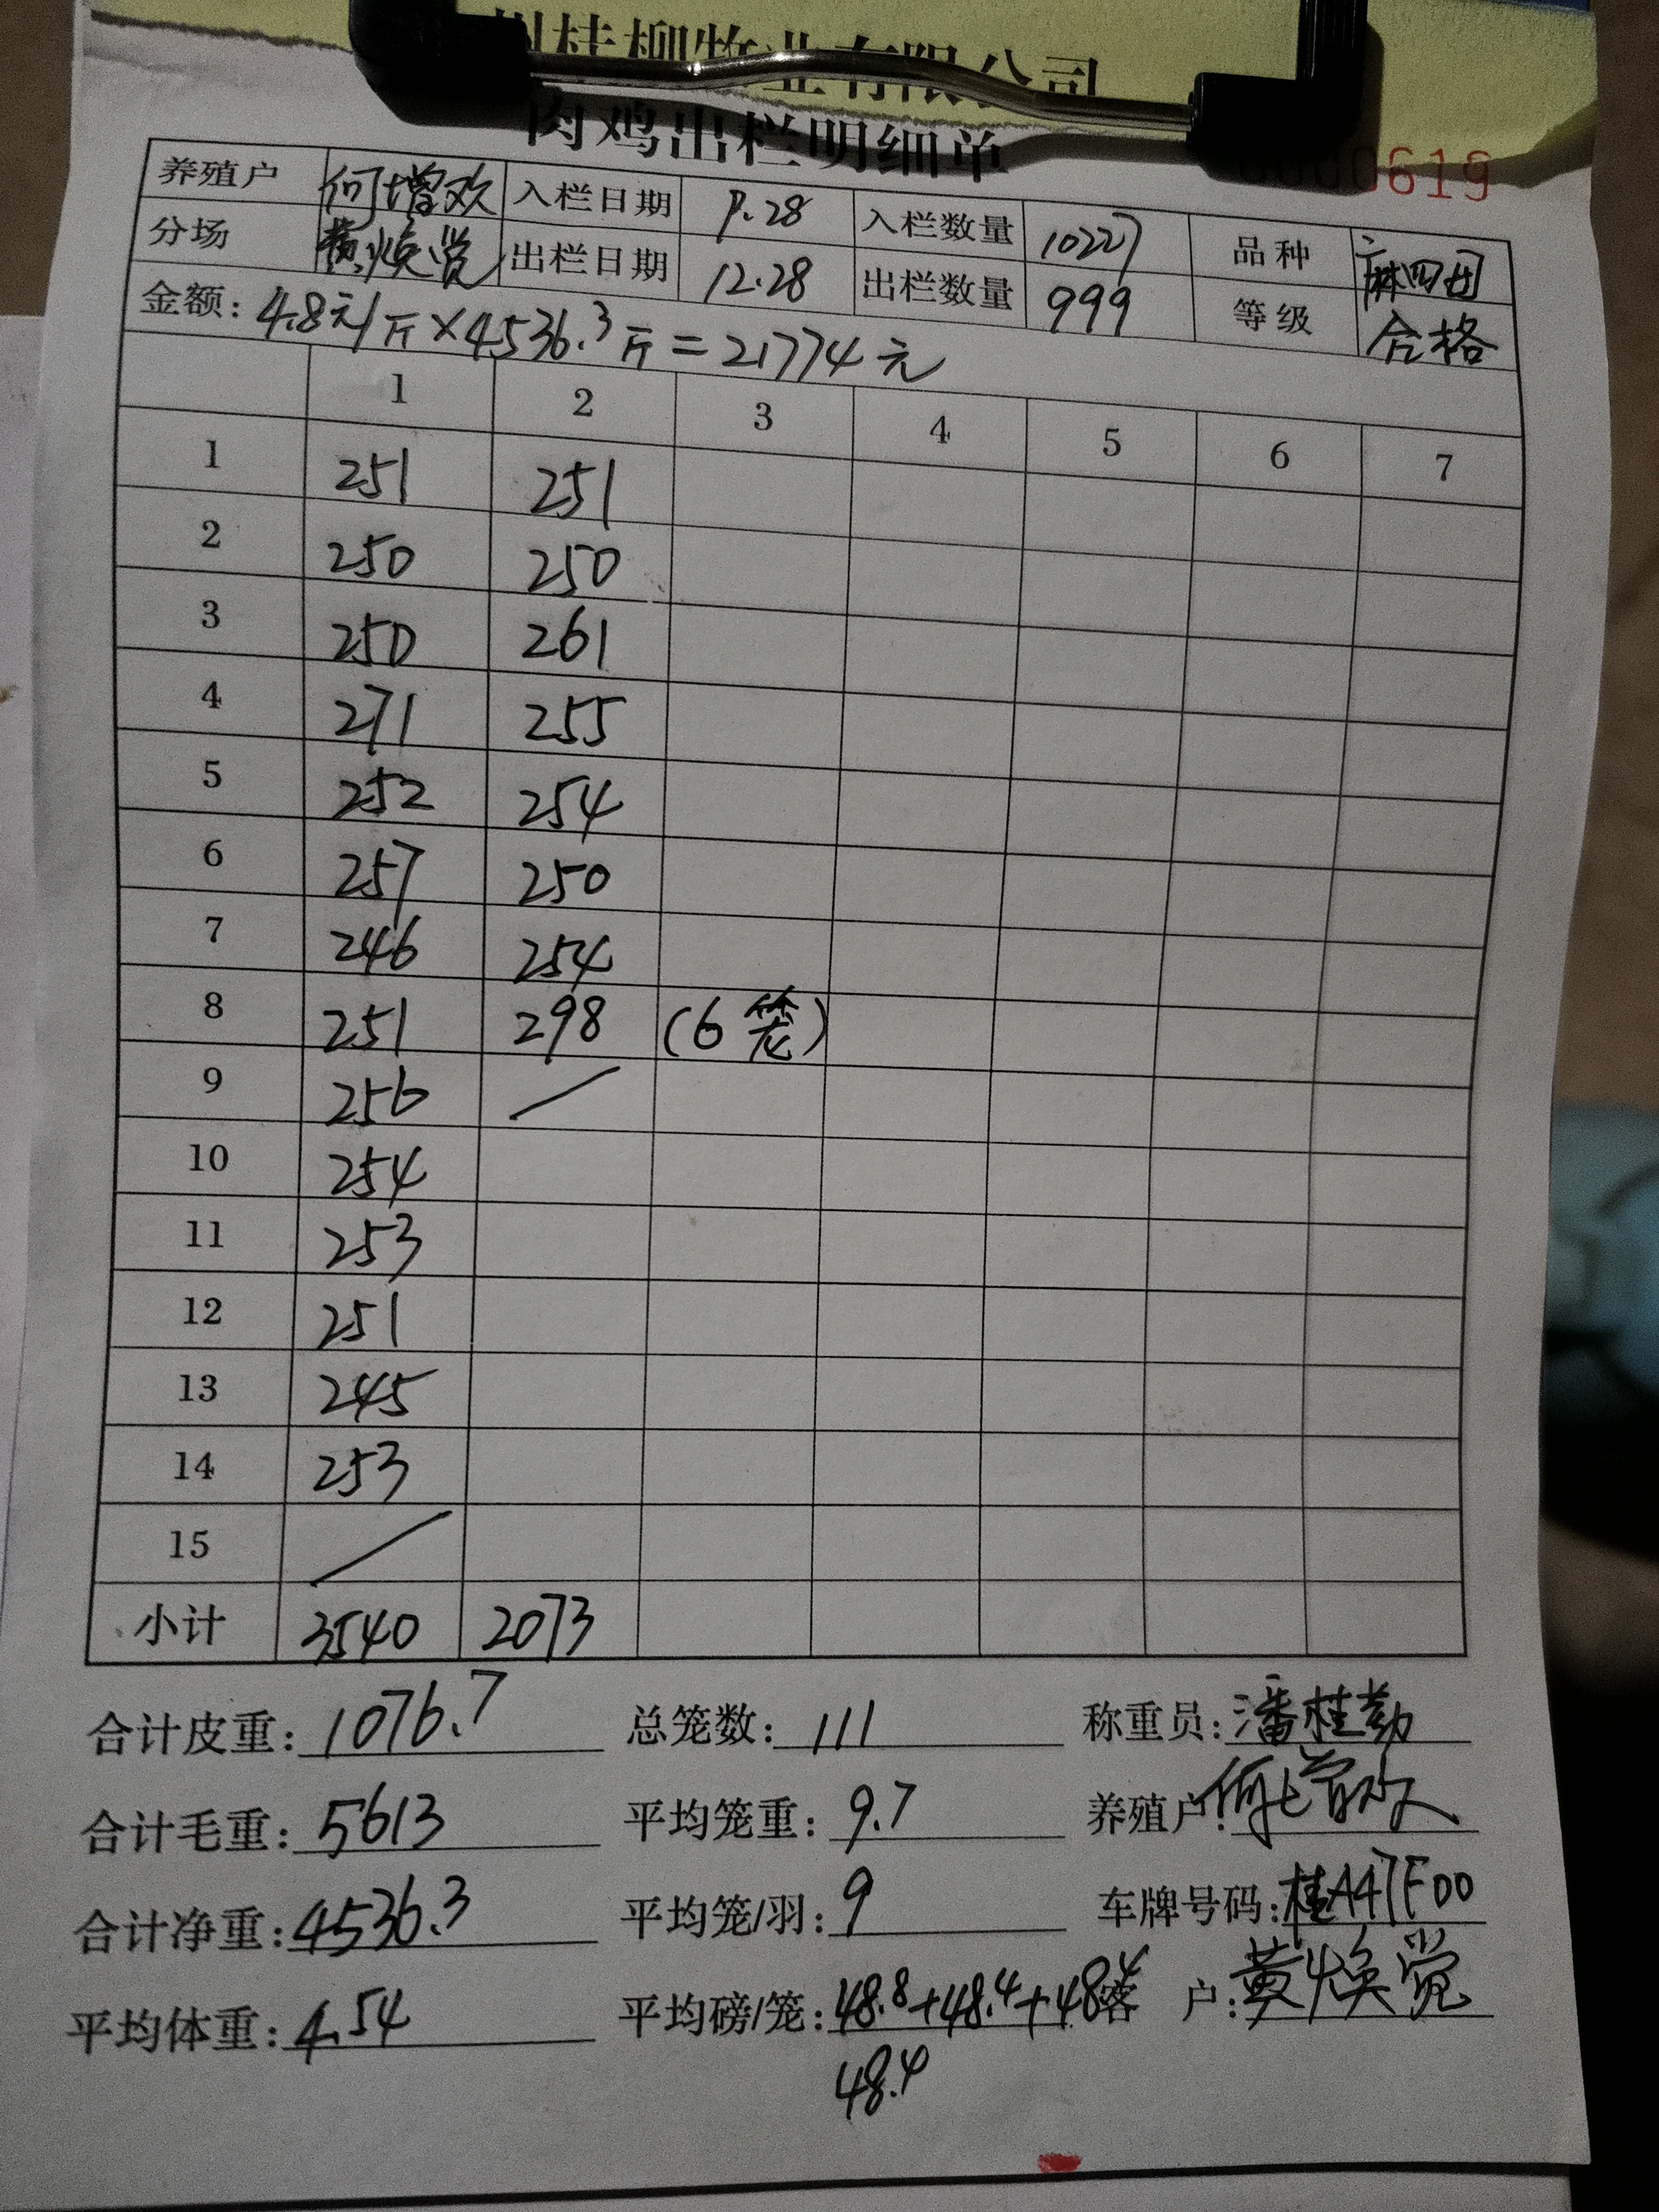 桂柳牧业有限公司
肉鸡出栏明细单
0000619
养殖户 何增欢 入栏日期 9.28 入栏数量 10227 品种 麻四团
分场 黄焕觉 出栏日期 12.28 出栏数量 999 等级 合格
金额: 4.8元/斤×4536.3斤=21774元
1 2 3 4 5 6 7
1 251 251
2 250 250
3 250 261
4 271 255
5 252 254
6 257 250
7 246 254
8 251 298 (6笼)
9 256 /
10 254
11 253
12 251
13 245
14 253
15 /
小计 3540 2073
合计皮重: 1076.7 总笼数: 111 称重员: 潘桂勤
合计毛重: 5613 平均笼重: 9.7 养殖户: 何增欢
合计净重: 4536.3 平均笼/羽: 9 车牌号码: 桂A47F00
平均体重: 4.54 平均磅/笼: 48.8+48.4+48.4 客户: 黄焕觉
48.4